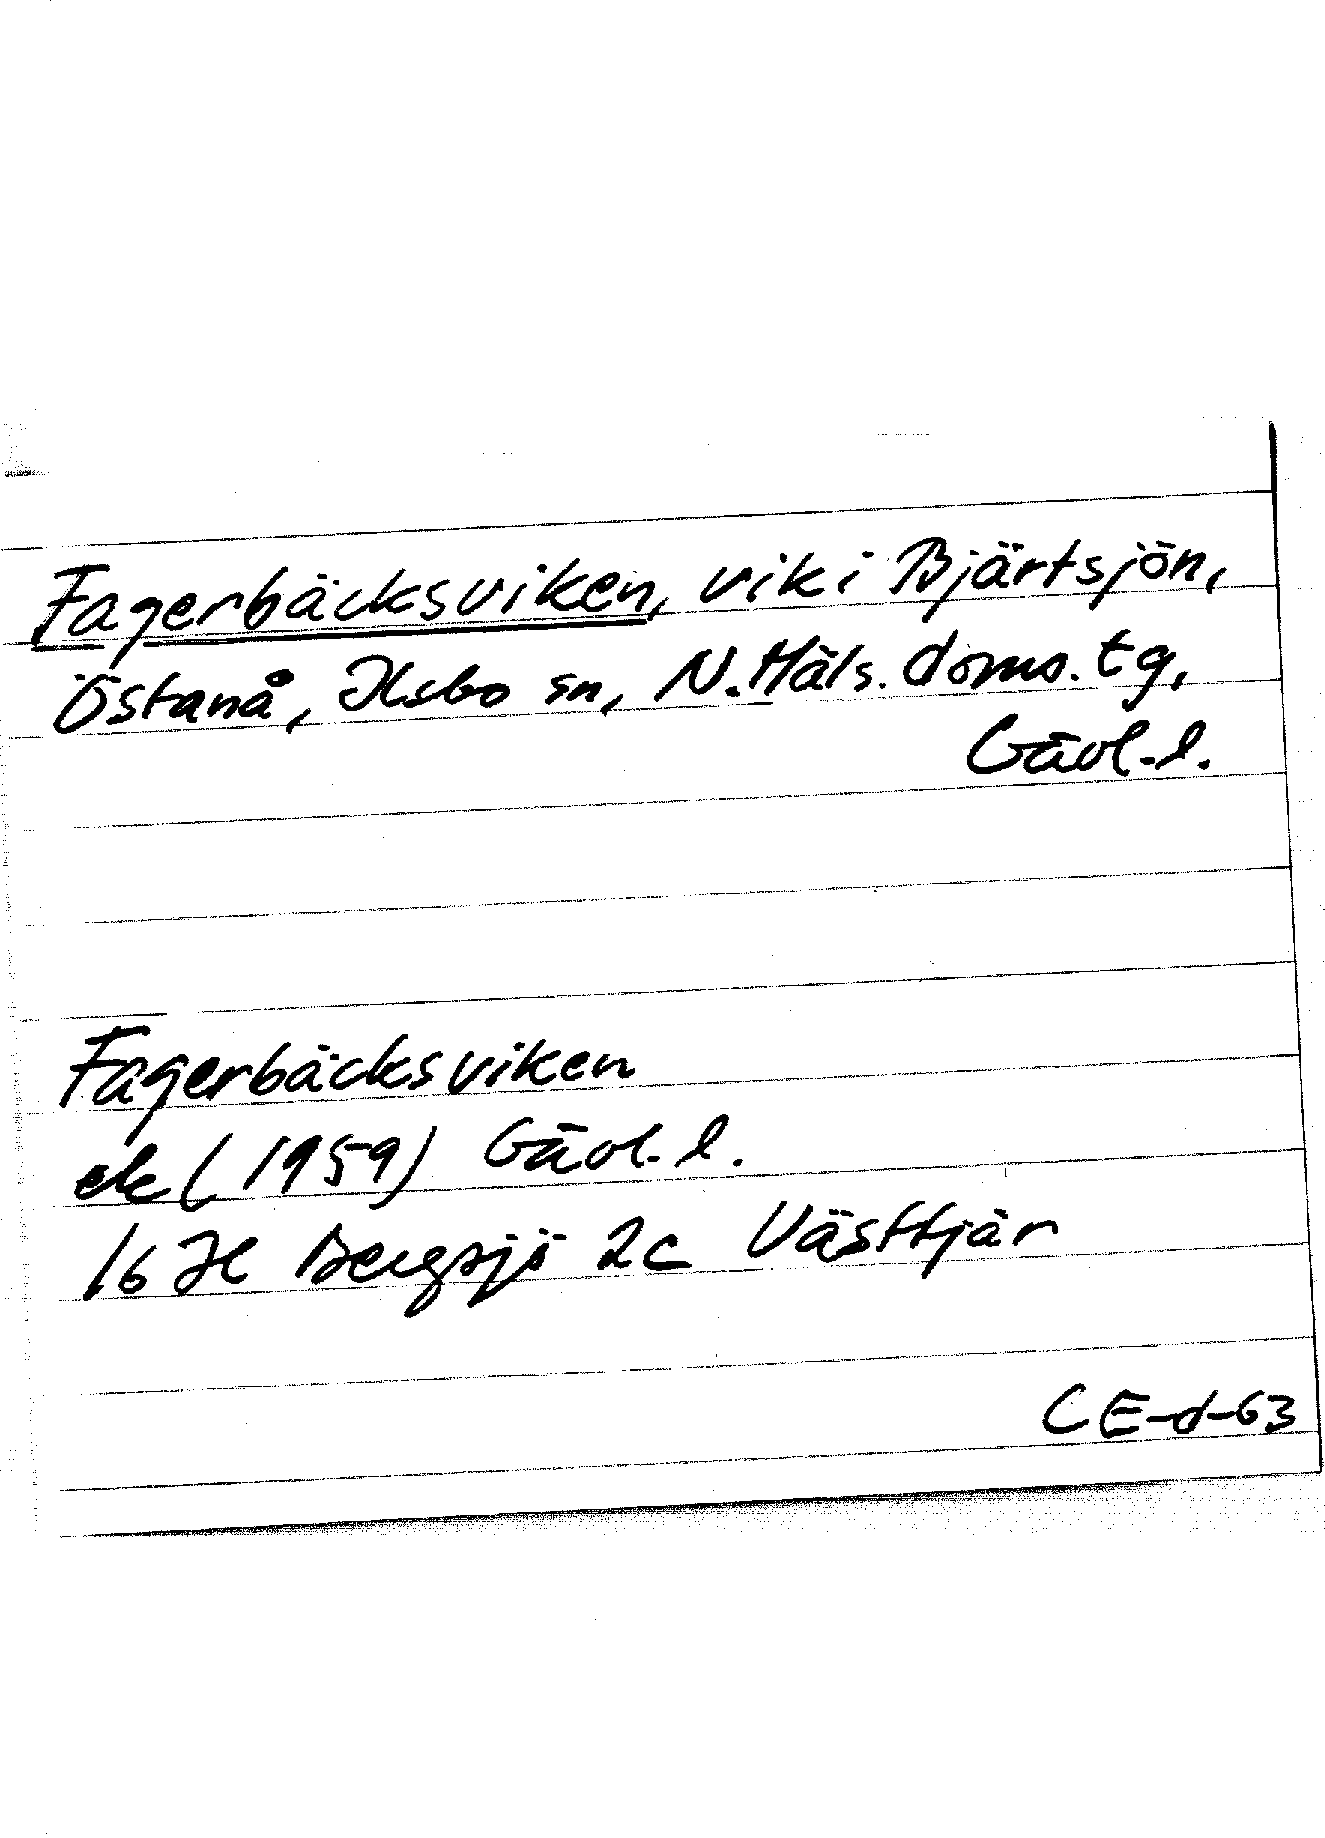 Fagerbäcksviken, vik i Bjärtsjön,
Östanå, Ilsbo sn, N. Häls. doms. tg,
Gävl. l.
Fagerbäcksviken
ek (1959) Gävl. l.
16 H Bergsjö 2c Västtjär
CE-d-63